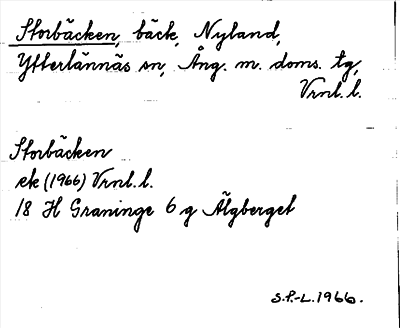 Storbäcken, bäck, Nyland,
Ytterlännäs sn, Ång. m. doms. tg,
Vrnl. l.
Storbäcken
ek (1966) Vrnl. l.
18 H Graninge 6 g Älgberget
S.P.-L. 1966.